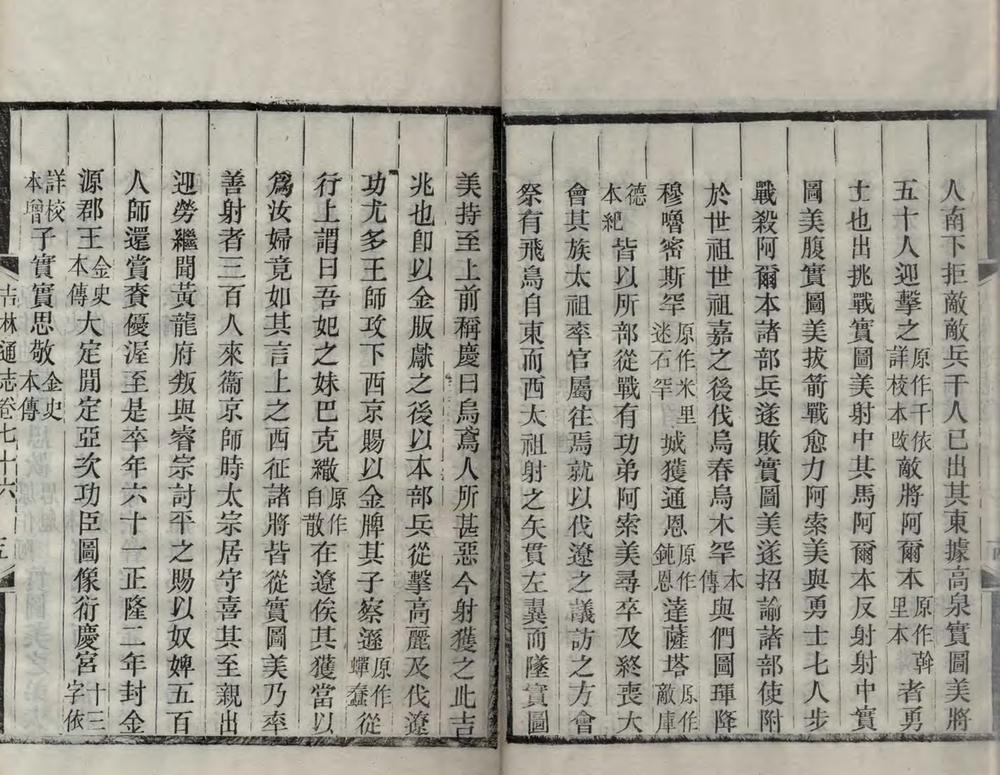 人南下拒敵敵兵千人已出其東據高泉實圖美將
五十人迎擊之原作千依詳校本改敵將阿爾本原作斡里本者勇
士也出挑戰實圖美射中其馬阿爾本反射射中實
圖美腹實圖美拔箭戰愈力阿索美與勇士七人步
戰殺阿爾本諸部兵遂敗實圖美遂招諭諸部使附
於世祖世祖嘉之後伐烏春烏木罕本傳與們圖琿降
穆嚕密斯罕原作米里迷石罕城獲通恩原作鈍恩達薩塔原作敵庫
德本紀皆以所部從戰有功弟阿索美尋卒及終喪大
會其族太祖率官屬往焉就以伐遼之議訪之方會
祭有飛鳥自東而西太祖射之矢貫左翼而墜實圖
美持至上前稱慶曰烏鳶人所甚惡今射獲之此吉
兆也即以金版獻之後以本部兵從擊高麗及伐遼
功尤多王師攻下西京賜以金牌其子察遜原作蟬蠢從
行上謂曰吾妃之妹巴克繖原作白散在遼俟其獲當以
為汝婦竟如其言上之西征諸將皆從實圖美乃率
善射者三百人來衞京師時太宗居守喜其至親出
迎勞繼聞黃龍府叛與睿宗討平之賜以奴婢五百
人師還賞賚優渥至是卒年六十一正隆二年封金
源郡王金史本傳大定閒定亞次功臣圖像衍慶宮十三字依
詳校本增子實實思敬金史本傳
吉林通志卷七十六 五